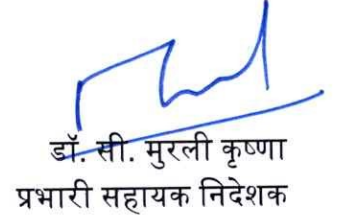 डॉ. सी. मुरली कृष्णा
प्रभारी सहायक निदेशक